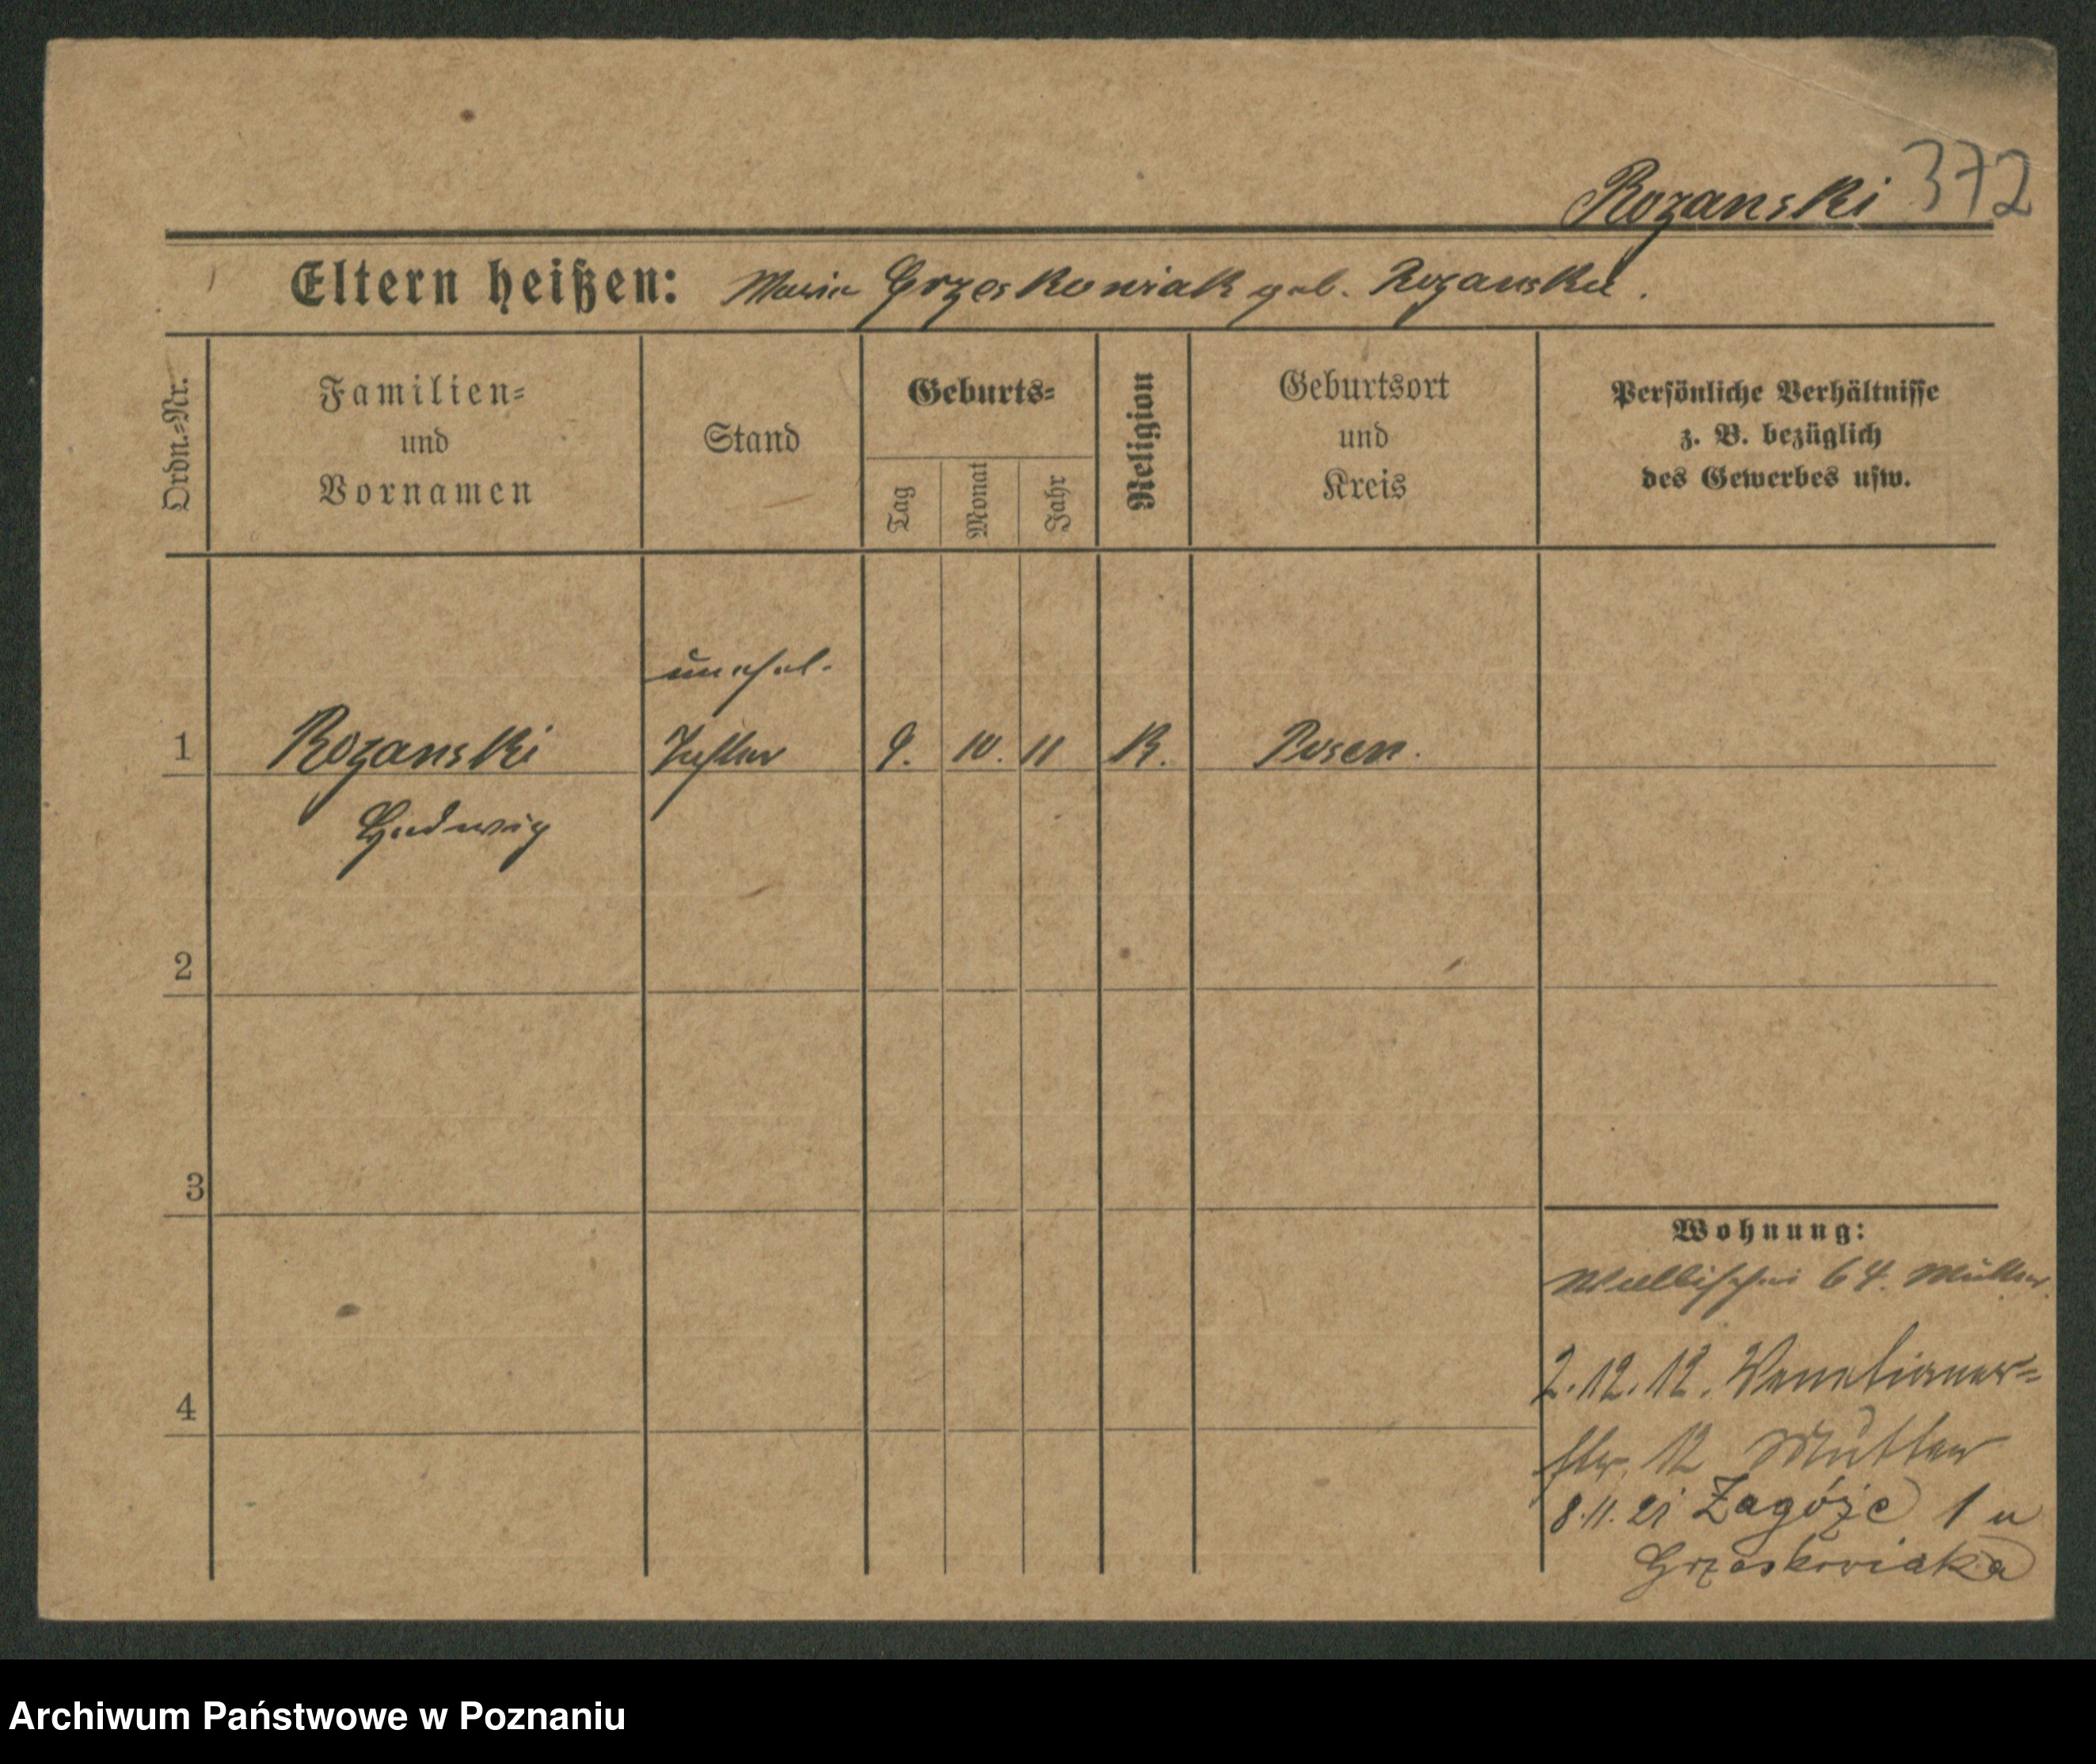 Rozanski 372
Eltern heißen: Maria Grzeskowiak geb. Rozanska.
Ordn.=Nr.
Familien=
und
Vornamen
Stand
Geburts=
Tag
Monat
Jahr
Religion
Geburtsort
und
Kreis
Persönliche Verhältnisse
z. B. bezüglich
des Gewerbes usw.
unehel.
1 Rozanski Tochter 9. 10. 11 K. Posen.
Hedwig
2
3
4
Wohnung:
Wallischei 64. Mutter.
2.12.12. Venetianer=
str. 12 Mutter
8.11.21 Zagórze 1 u
Grzeskowiaka
Archiwum Państwowe w Poznaniu